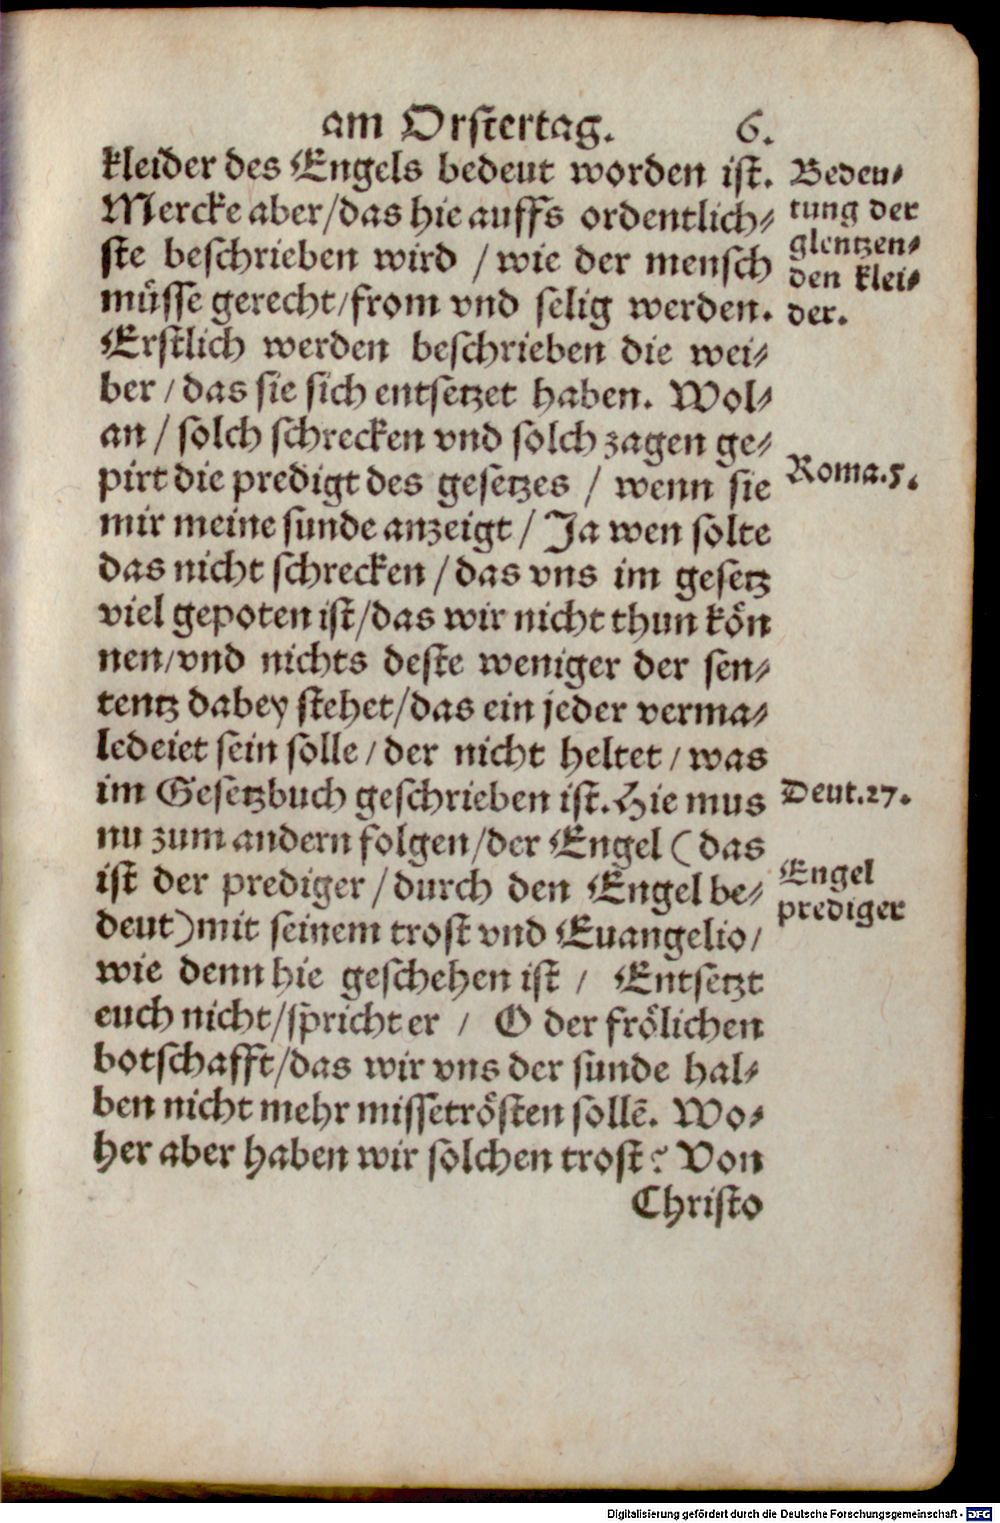 am Orstertag. 6.
kleider des Engels bedeut worden ist.
Mercke aber/das hie auffs ordentlich⸗
ste beschrieben wird / wie der mensch
müsse gerecht/from vnd selig werden.
Erstlich werden beschrieben die wei⸗
ber / das sie sich entsetzet haben. Wol⸗
an / solch schrecken vnd solch zagen ge⸗
pirt die predigt des gesetzes / wenn sie
mir meine sunde anzeigt / Ja wen solte
das nicht schrecken / das vns im gesetz
viel gepoten ist/das wir nicht thun kön
nen/vnd nichts deste weniger der sen⸗
tentz dabey stehet/das ein jeder verma⸗
ledeiet sein solle / der nicht heltet / was
im Gesetzbuch geschrieben ist. Hie mus
nu zum andern folgen/der Engel (das
ist der prediger / durch den Engel be⸗
deut) mit seinem trost vnd Euangelio/
wie denn hie geschehen ist / Entsetzt
euch nicht/spricht er / O der frölichen
botschafft/das wir vns der sunde hal⸗
ben nicht mehr missetrösten sollē. Wo⸗
her aber haben wir solchen trost? Von
Christo
Bedeu⸗
tung der
glentzen⸗
den klei⸗
der.
Roma.5.
Deut.27.
Engel
prediger
Digitalisierung gefördert durch die Deutsche Forschungsgemeinschaft - DFG